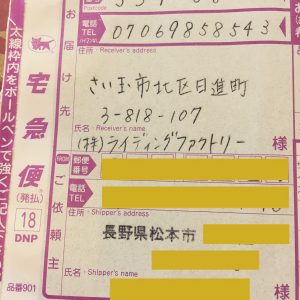 太線枠内をボールペンで強くご記入
宅急便
(発払)
18
DNP
品番901
お届け先
Postcode
電話 TEL 07069858543
住所: Receiver's address
さいたま市北区日進町
3-818-107
氏名: Receiver's name
(株)ライディングファクトリー
様
FROM 郵便番号
ご依頼主
電話 TEL
住所: Shipper's address
長野県松本市
氏名: Shipper's name
様